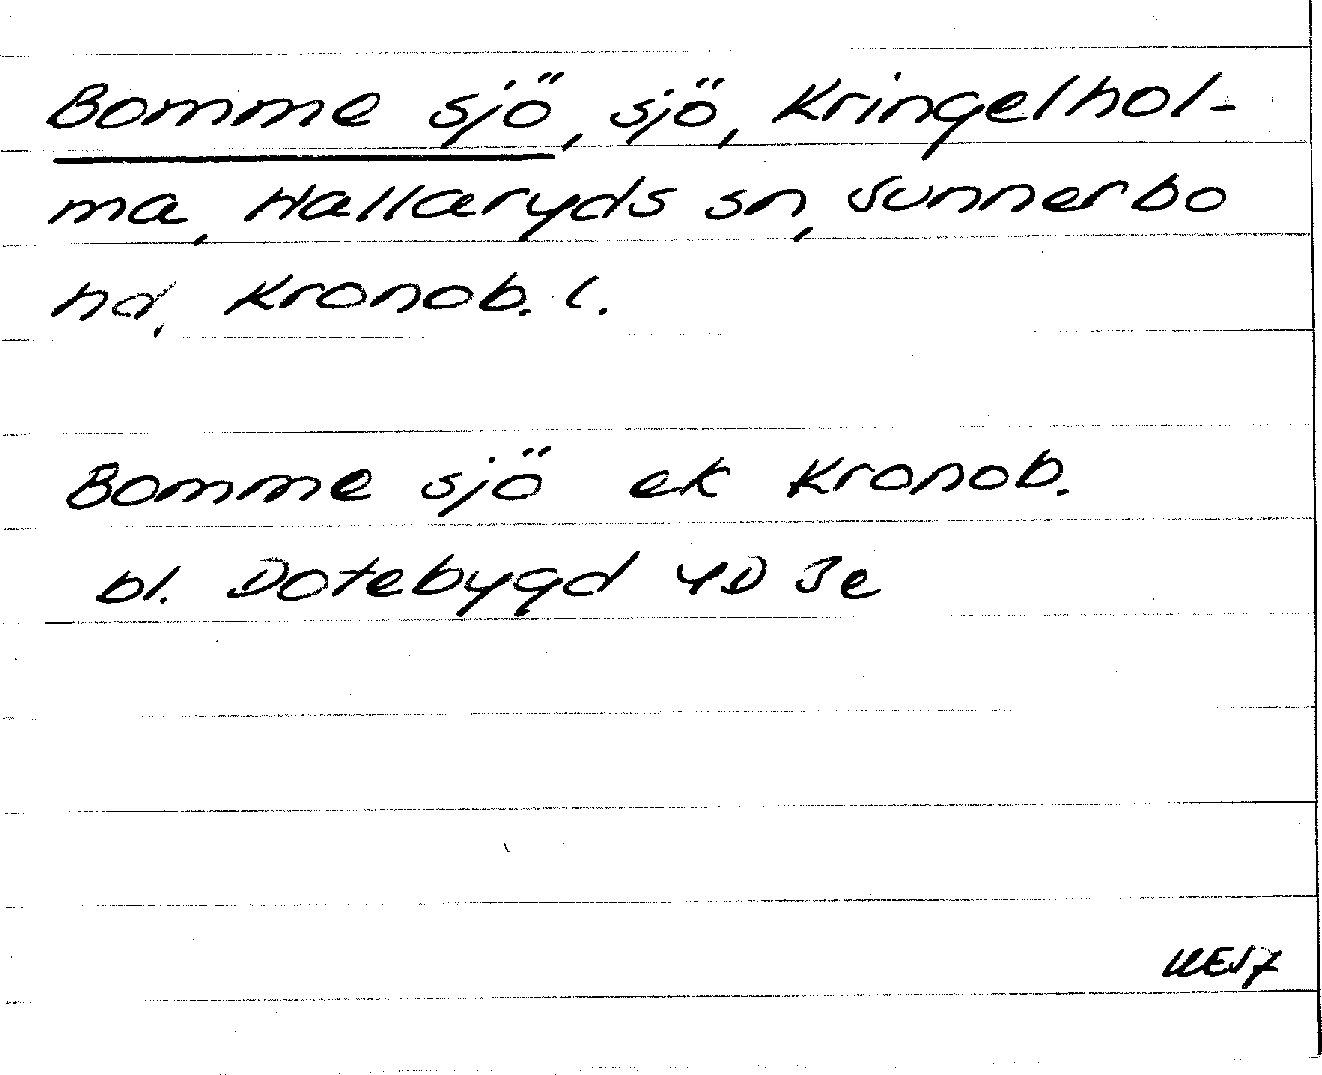 Bomme sjö, sjö, Kringelhol-
ma, Hallaryds sn, Sunnerbo
hd, Kronob. l.
Bomme sjö ek Kronob.
bl. Dotebygd 4D 3e